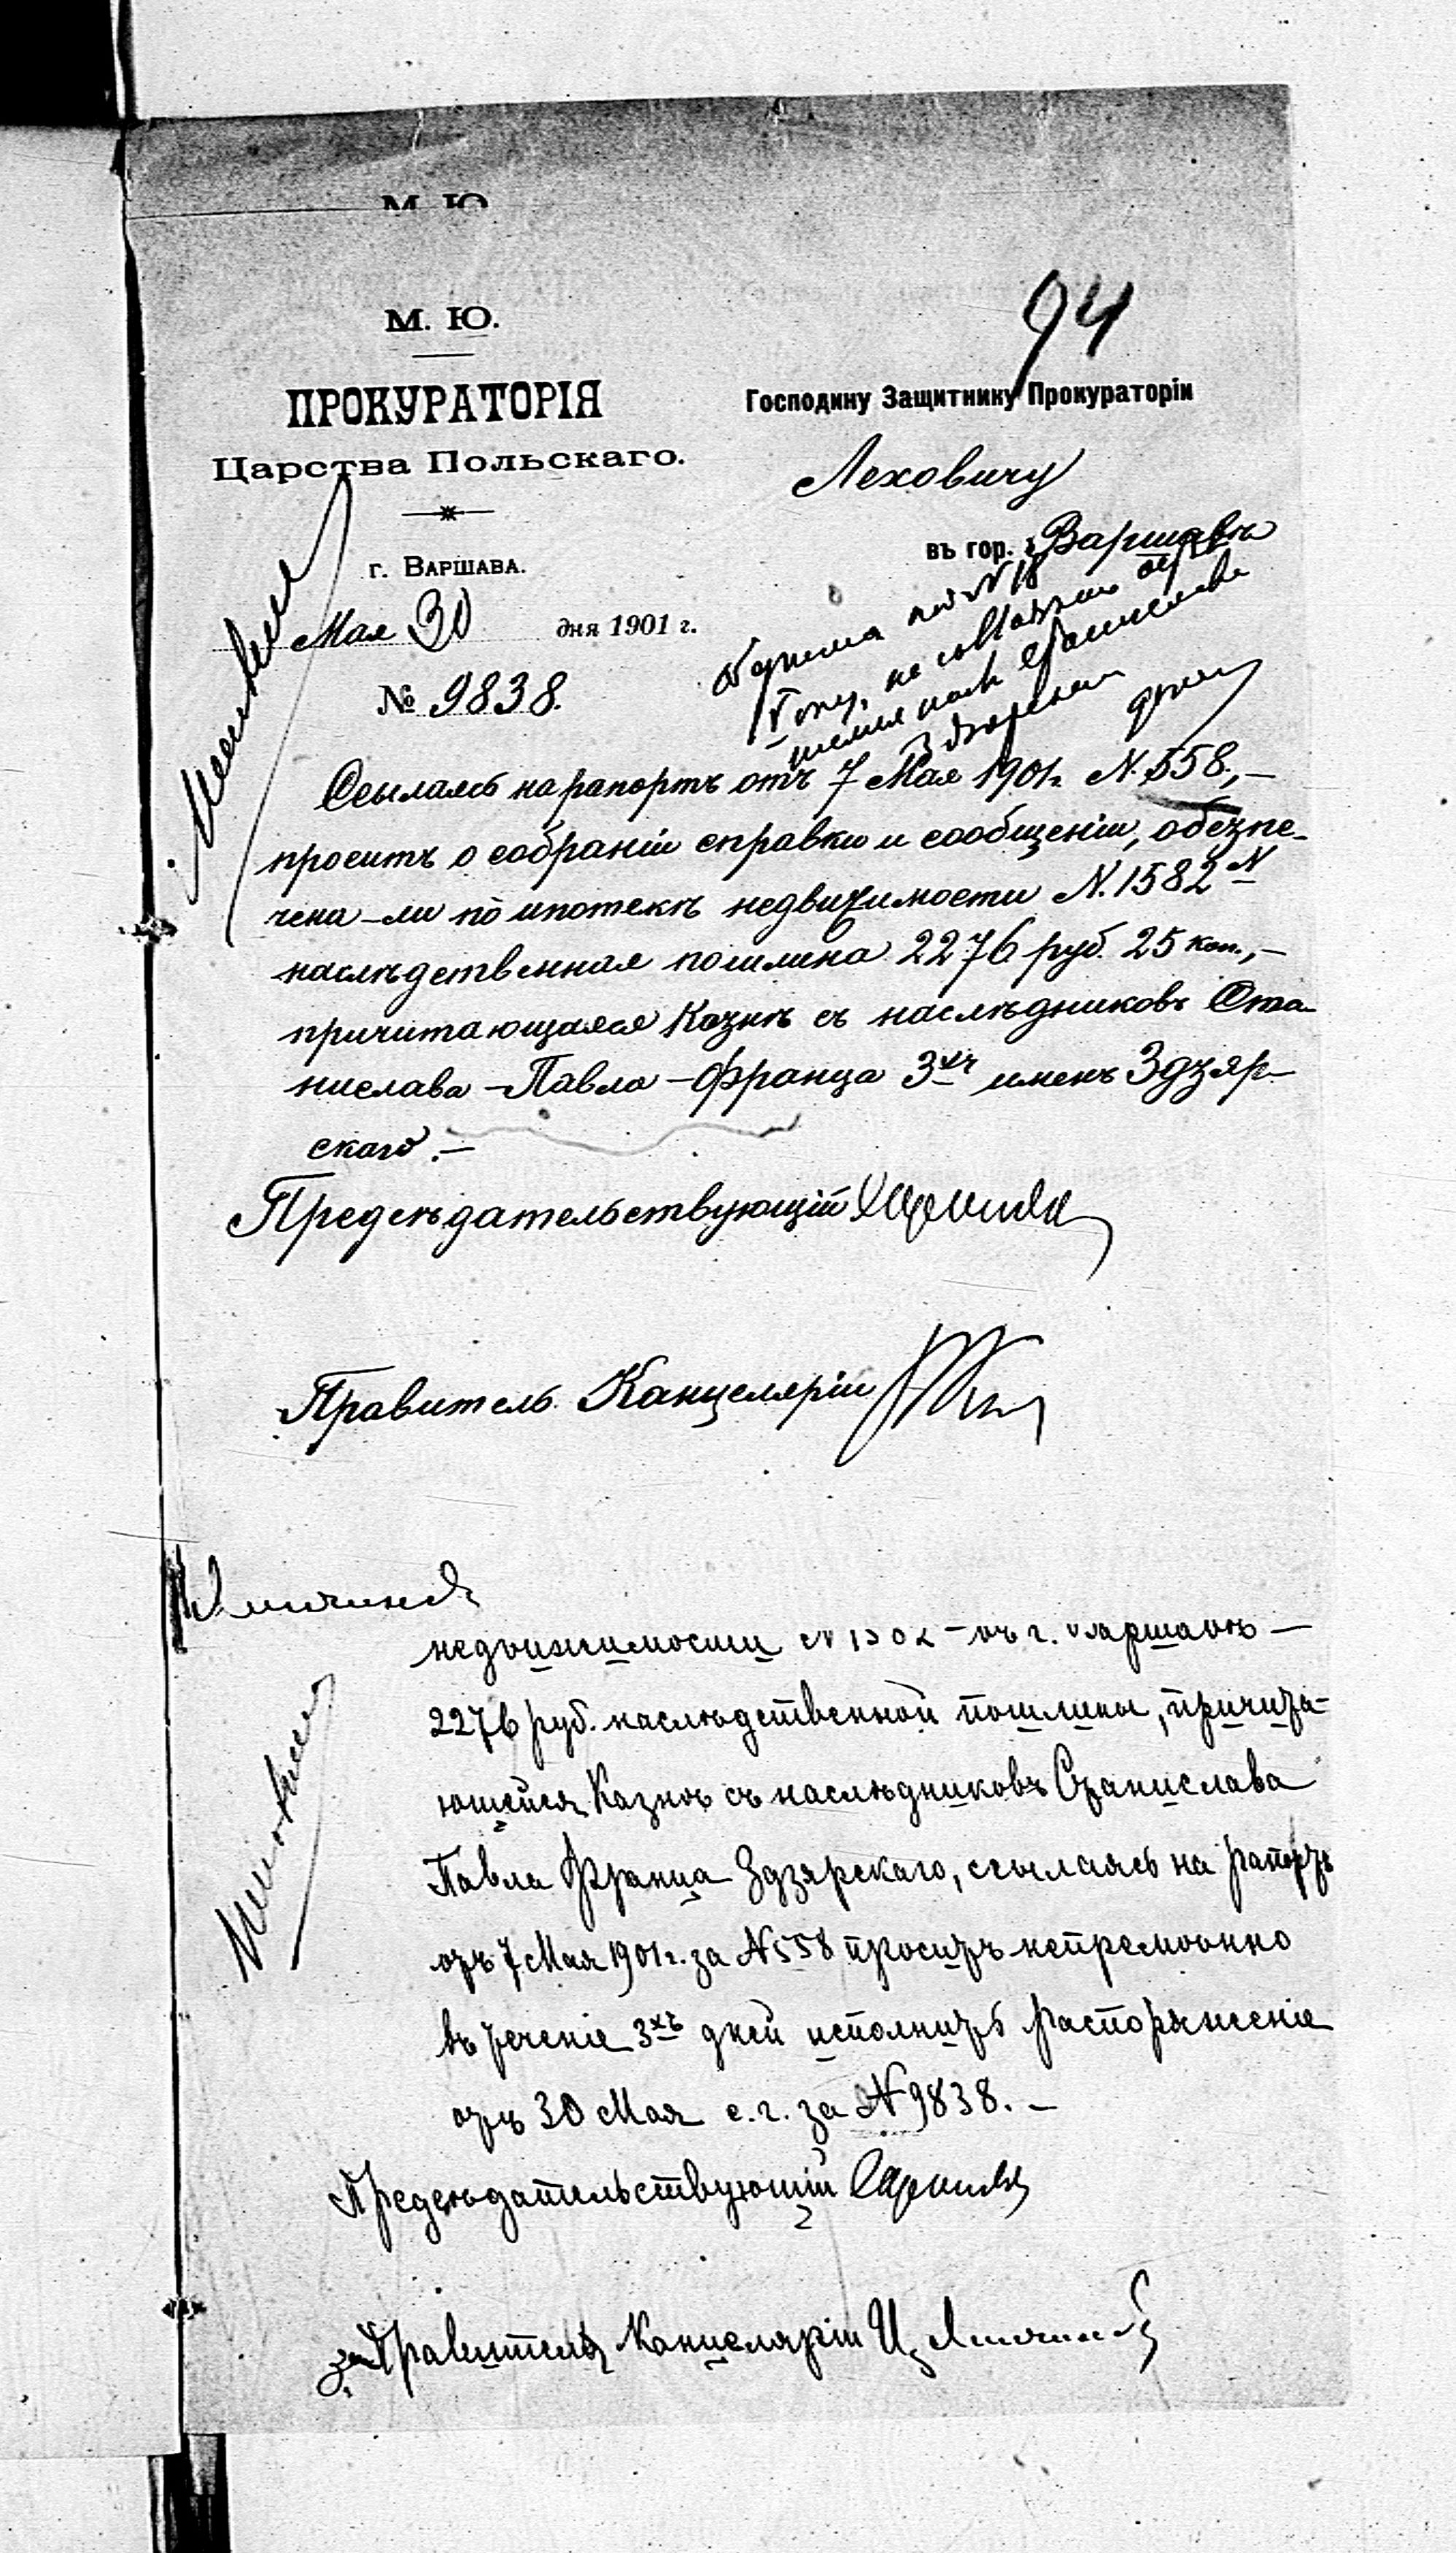 М. Ю.
М. Ю.
94
ПРОКУРАТОРІЯ
Царства Польскаго.
г. Варшава.
Мая 30 дня 1901 г.
№ 9838.
Господину Защитнику Прокураторіи
Леховичу
въ гор. Варшавѣ
Ссылаясь на рапортъ отъ 7 Мая 1901 г. N. 558, —
проситъ о собраніи справки и сообщеніи, обезпе-
чена-ли по ипотекѣ недвижимости N. 1582
наслѣдственная пошлина 2276 руб. 25 коп., —
причитающаяся Казнѣ съ наслѣдниковъ Ста-
нислава-Павла-Франца 3хъ именъ Здзяр-
скаго. —
Предсѣдательствующій
Правитель Канцеляріи
недвижимости N 1582 - въ г. Варшавѣ —
2276 руб. наслѣдственной пошлины, причита-
ющейся Казнѣ съ наслѣдниковъ Станислава
Павла Франца Здзярскаго, ссылаясь на рапортъ
отъ 7 Мая 1901 г. за N 558 проситъ непремѣнно
въ теченіе 3хъ дней исполнить распоряженіе
отъ 30 Мая с. г. за N 9838. —
Предсѣдательствующій
за Правителя Канцеляріи